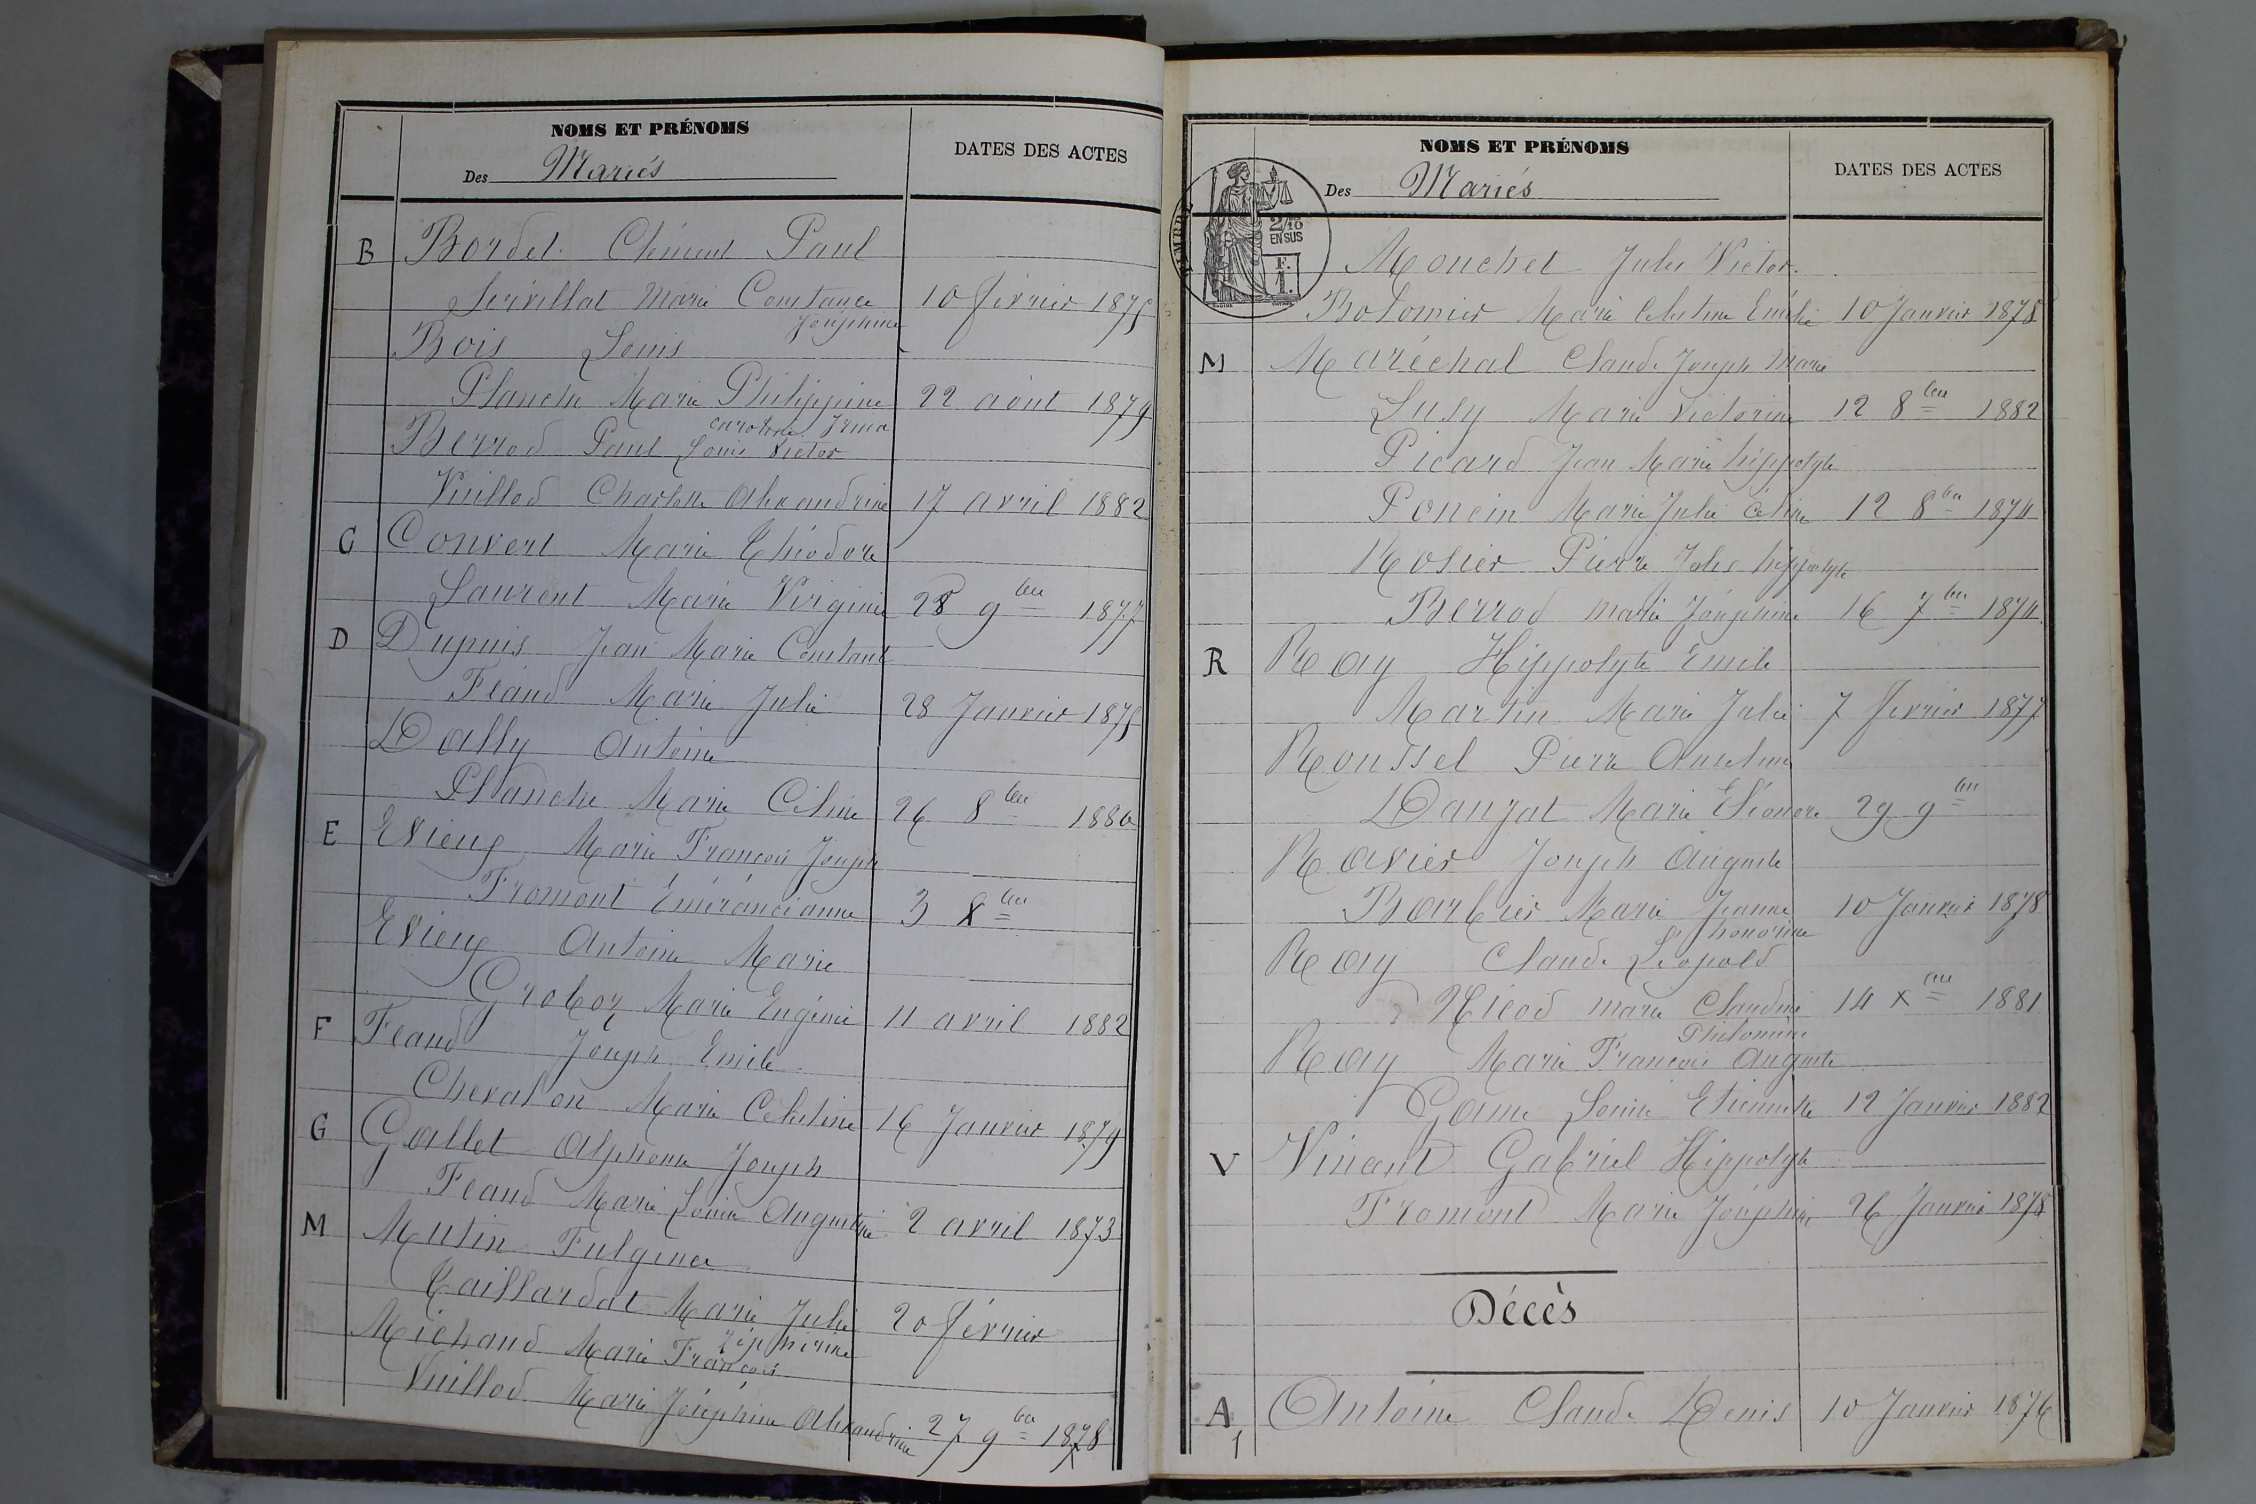 NOMS ET PRÉNOMS
Des Mariés
DATES DES ACTES
B Bordet Clément Paul
Servillat Marie Constance 10 février 1875
Joséphine
Bois Louis
Planche Marie Philippine 22 août 1879
Caroline Irma
Berrod Paul Louis Victor
Vuillod Charlotte Alexandrine 17 avril 1882
C Convert Marie Théodore
Laurent Marie Virginie 28 9bre 1877
D Dupuis Jean Marie Constant
Féaud Marie Julie 28 Janvier 1875
Dally Antoine
Planche Marie Céline 26 8bre 1880
E Evieux Marie François Joseph
Fromont Émérancianne 3 8bre
Evieux Antoine Marie
Groboz Marie Eugénie 11 avril 1882
F Féaud Joseph Emile
Chevalon Marie Célestine 16 Janvier 1879
G Gallet Alphonse Joseph
Féaud Marie Louise Augustine 2 avril 1873
M Mutin Fulgence
Taillardat Marie Julie 20 février
Zéphirine
Michaud Marie François
Vuillod Marie Joséphine Alexandrine 27 9bre 1878
NOMS ET PRÉNOMS
Des Mariés
DATES DES ACTES
TIMBRE
2/10
EN SUS
F.
1.
Mouchet Jules Victor
Bolomier Marie Célestine Emélie 10 Janvier 1878
M Maréchal Claude Joseph Marie
Lusy Marie Victorine 12 8bre 1882
Picard Jean Marie hippolyte
Poncin Marie Julie Céline 12 8bre 1874
Rosier Pierre Jules hippolyte
Berrod Marie Joséphine 16 7bre 1874
R Ray Hippolyte Emile
Martin Marie Julie 7 février 1877
Roussel Pierre Anselme
Danjat Marie Eléonore 29 9bre
Ravier Joseph Auguste
Barbier Marie Jeanne 10 Janvier 1878
honorine
Ray Claude Léopold
Nicod Marie Claudine 14 xbre 1881
Philomène
Ray Marie François Auguste
Game Louise Etiennette 12 Janvier 1882
V Vincent Gabriel Hippolyte
Fromont Marie Joséphine 26 Janvier 1878
Décès
A Antoine Claude Denis 10 Janvier 1876
1